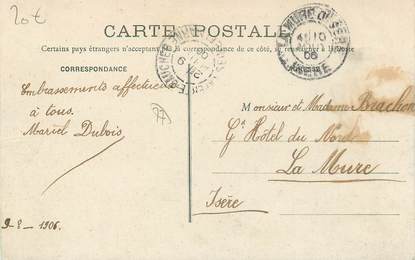 20€
CARTE POSTALE
Certains pays étrangers n'acceptant pas la correspondance de ce côté, se renseigner à la Poste
CORRESPONDANCE
Embrassements affectueux
à tous.
Marcel Dubois
9-8-1906.
Monsieur et Madame Brachon
Gd Hôtel du Nord
La Mure
Isère
LA MURE
ISERE